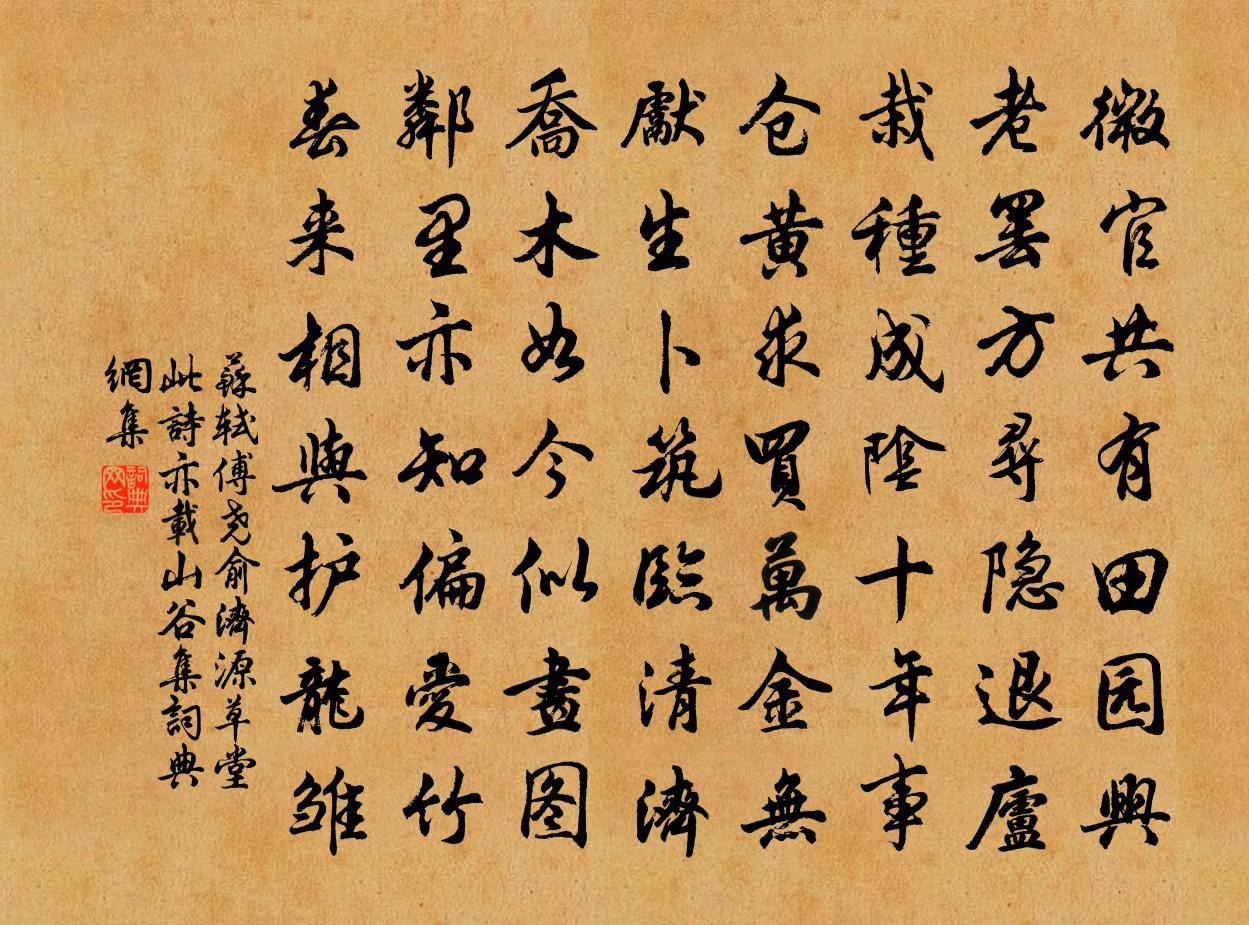 微官共有田园興
老罢方尋隐退廬
栽種成陰十年事
仓黄求買萬金無
獻生卜筑臨清濟
喬木如今似畫图
鄰里亦知偏愛竹
春来相與护龍雏
蘇軾傅尧俞濟源草堂
此詩亦載山谷集詞典
網集
詞典
网印